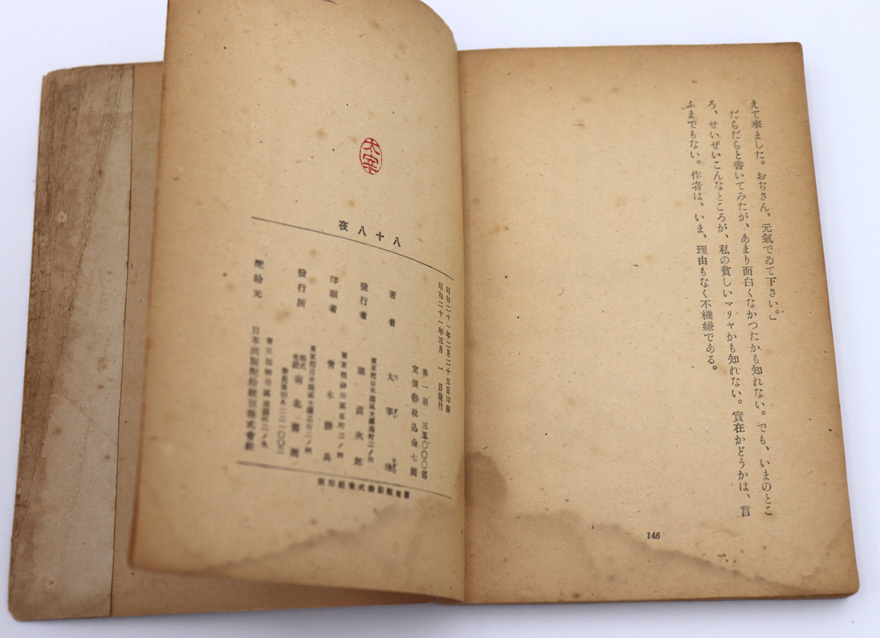 えて來ました。おぢさん、元氣でゐて下さい。」
だらだらと書いてみたが、あまり面白くなかつたかも知れない。でも、いまのとこ
ろ、せいぜいこんなところが、私の貧しいマリヤかも知れない。實在かどうかは、言
ふまでもない。作者は、いま、理由もなく不機嫌である。
146
太宰
八十八夜
昭和二十一年二月二十五日印刷
昭和二十一年三月一日發行
著者 太宰
發行者
印刷者 青木
發行所
配給元 日本出版配給株式會社